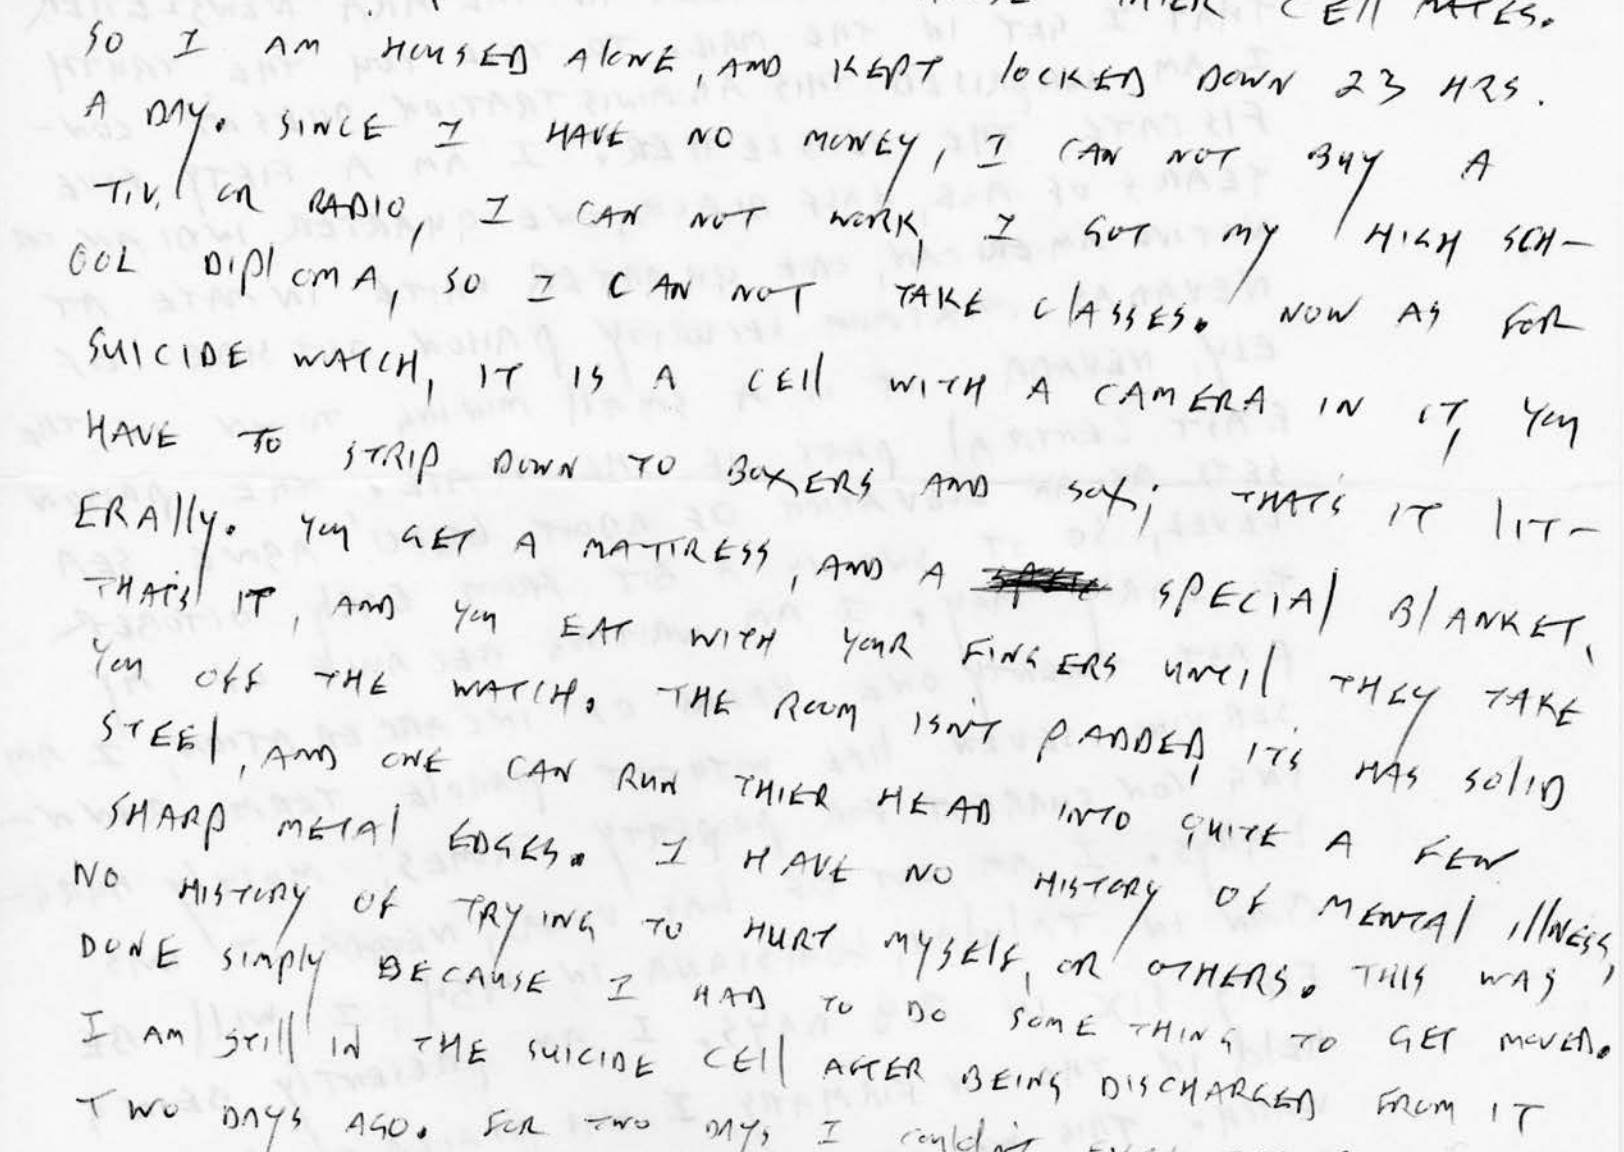 THIER CEll MATES.
SO I AM HOUSED AlONE, AND KEPT lOCKED DOWN 23 HRS.
A DAY. SINCE I HAVE NO MONEY, I CAN NOT BUY A
T.V. OR RADIO, I CAN NOT WORK, I GOT MY HIGH SCH-
OOL DIPlOMA, SO I CAN NOT TAKE ClASSES. NOW AS FOR
SUICIDE WATCH, IT IS A CEll WITH A CAMERA IN IT, YOU
HAVE TO STRIP DOWN TO BOXERS AND SOX; THAT'S IT lIT-
ERAlly. YOU GET A MATTRESS, AND A SPECIAl BlANKET,
THAT'S IT, AND YOU EAT WITH YOUR FINGERS UNTIl THEY TAKE
YOU OFF THE WATCH. THE ROOM ISN'T PADDED, IT'S HAS SOlID
STEEl, AND ONE CAN RUN THIER HEAD INTO QUITE A FEW
SHARP METAl EDGES. I HAVE NO HISTORY OF MENTAl IllNESS,
NO HISTORY OF TRYING TO HURT MYSElF, OR OTHERS. THIS WAS
DONE SIMPly BECAUSE I HAD TO DO SOME THING TO GET MOVED.
I AM STIll IN THE SUICIDE CEll AFTER BEING DISCHARGED FROM IT
TWO DAYS AGO. FOR TWO DAYS I COUldN'T